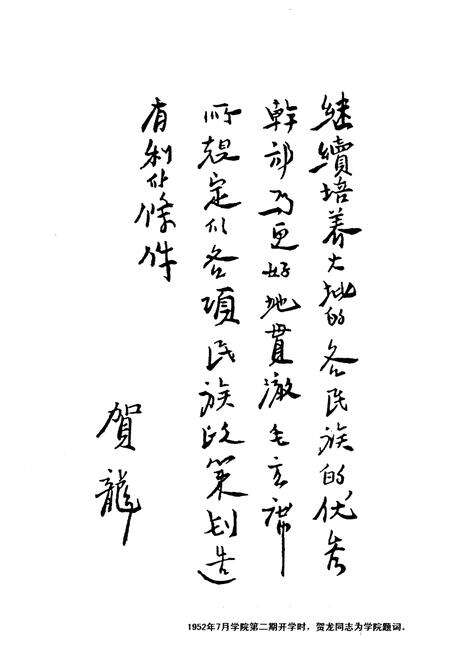 继續培养大批的各民族的优秀
幹部为更好地貫澈毛主席
所規定的各項民族政策创造
有利的條件
賀龍
1952年7月学院第二期开学时，贺龙同志为学院题词。